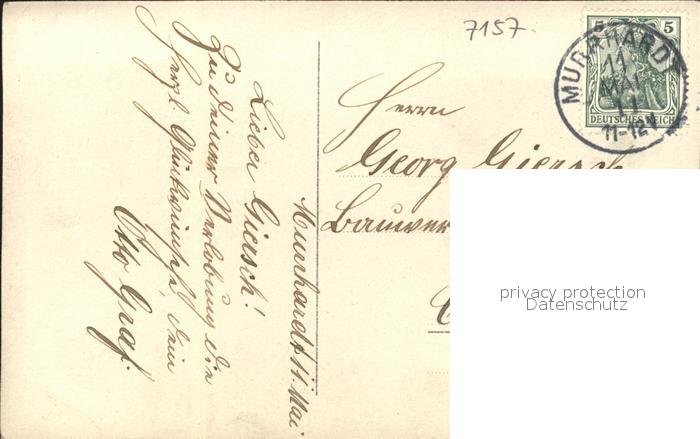 7157.
5 5
DEUTSCHES REICH
MURRHARDT
11
MAI
11
11-12
Herrn
Georg Giersch
Bauwer
Murrhardt 11. Mai.
Lieber Giersch!
Zu Deiner Verlobung die
herzl. Glückwünsche, Dein
Otto Graf.
privacy protection
Datenschutz